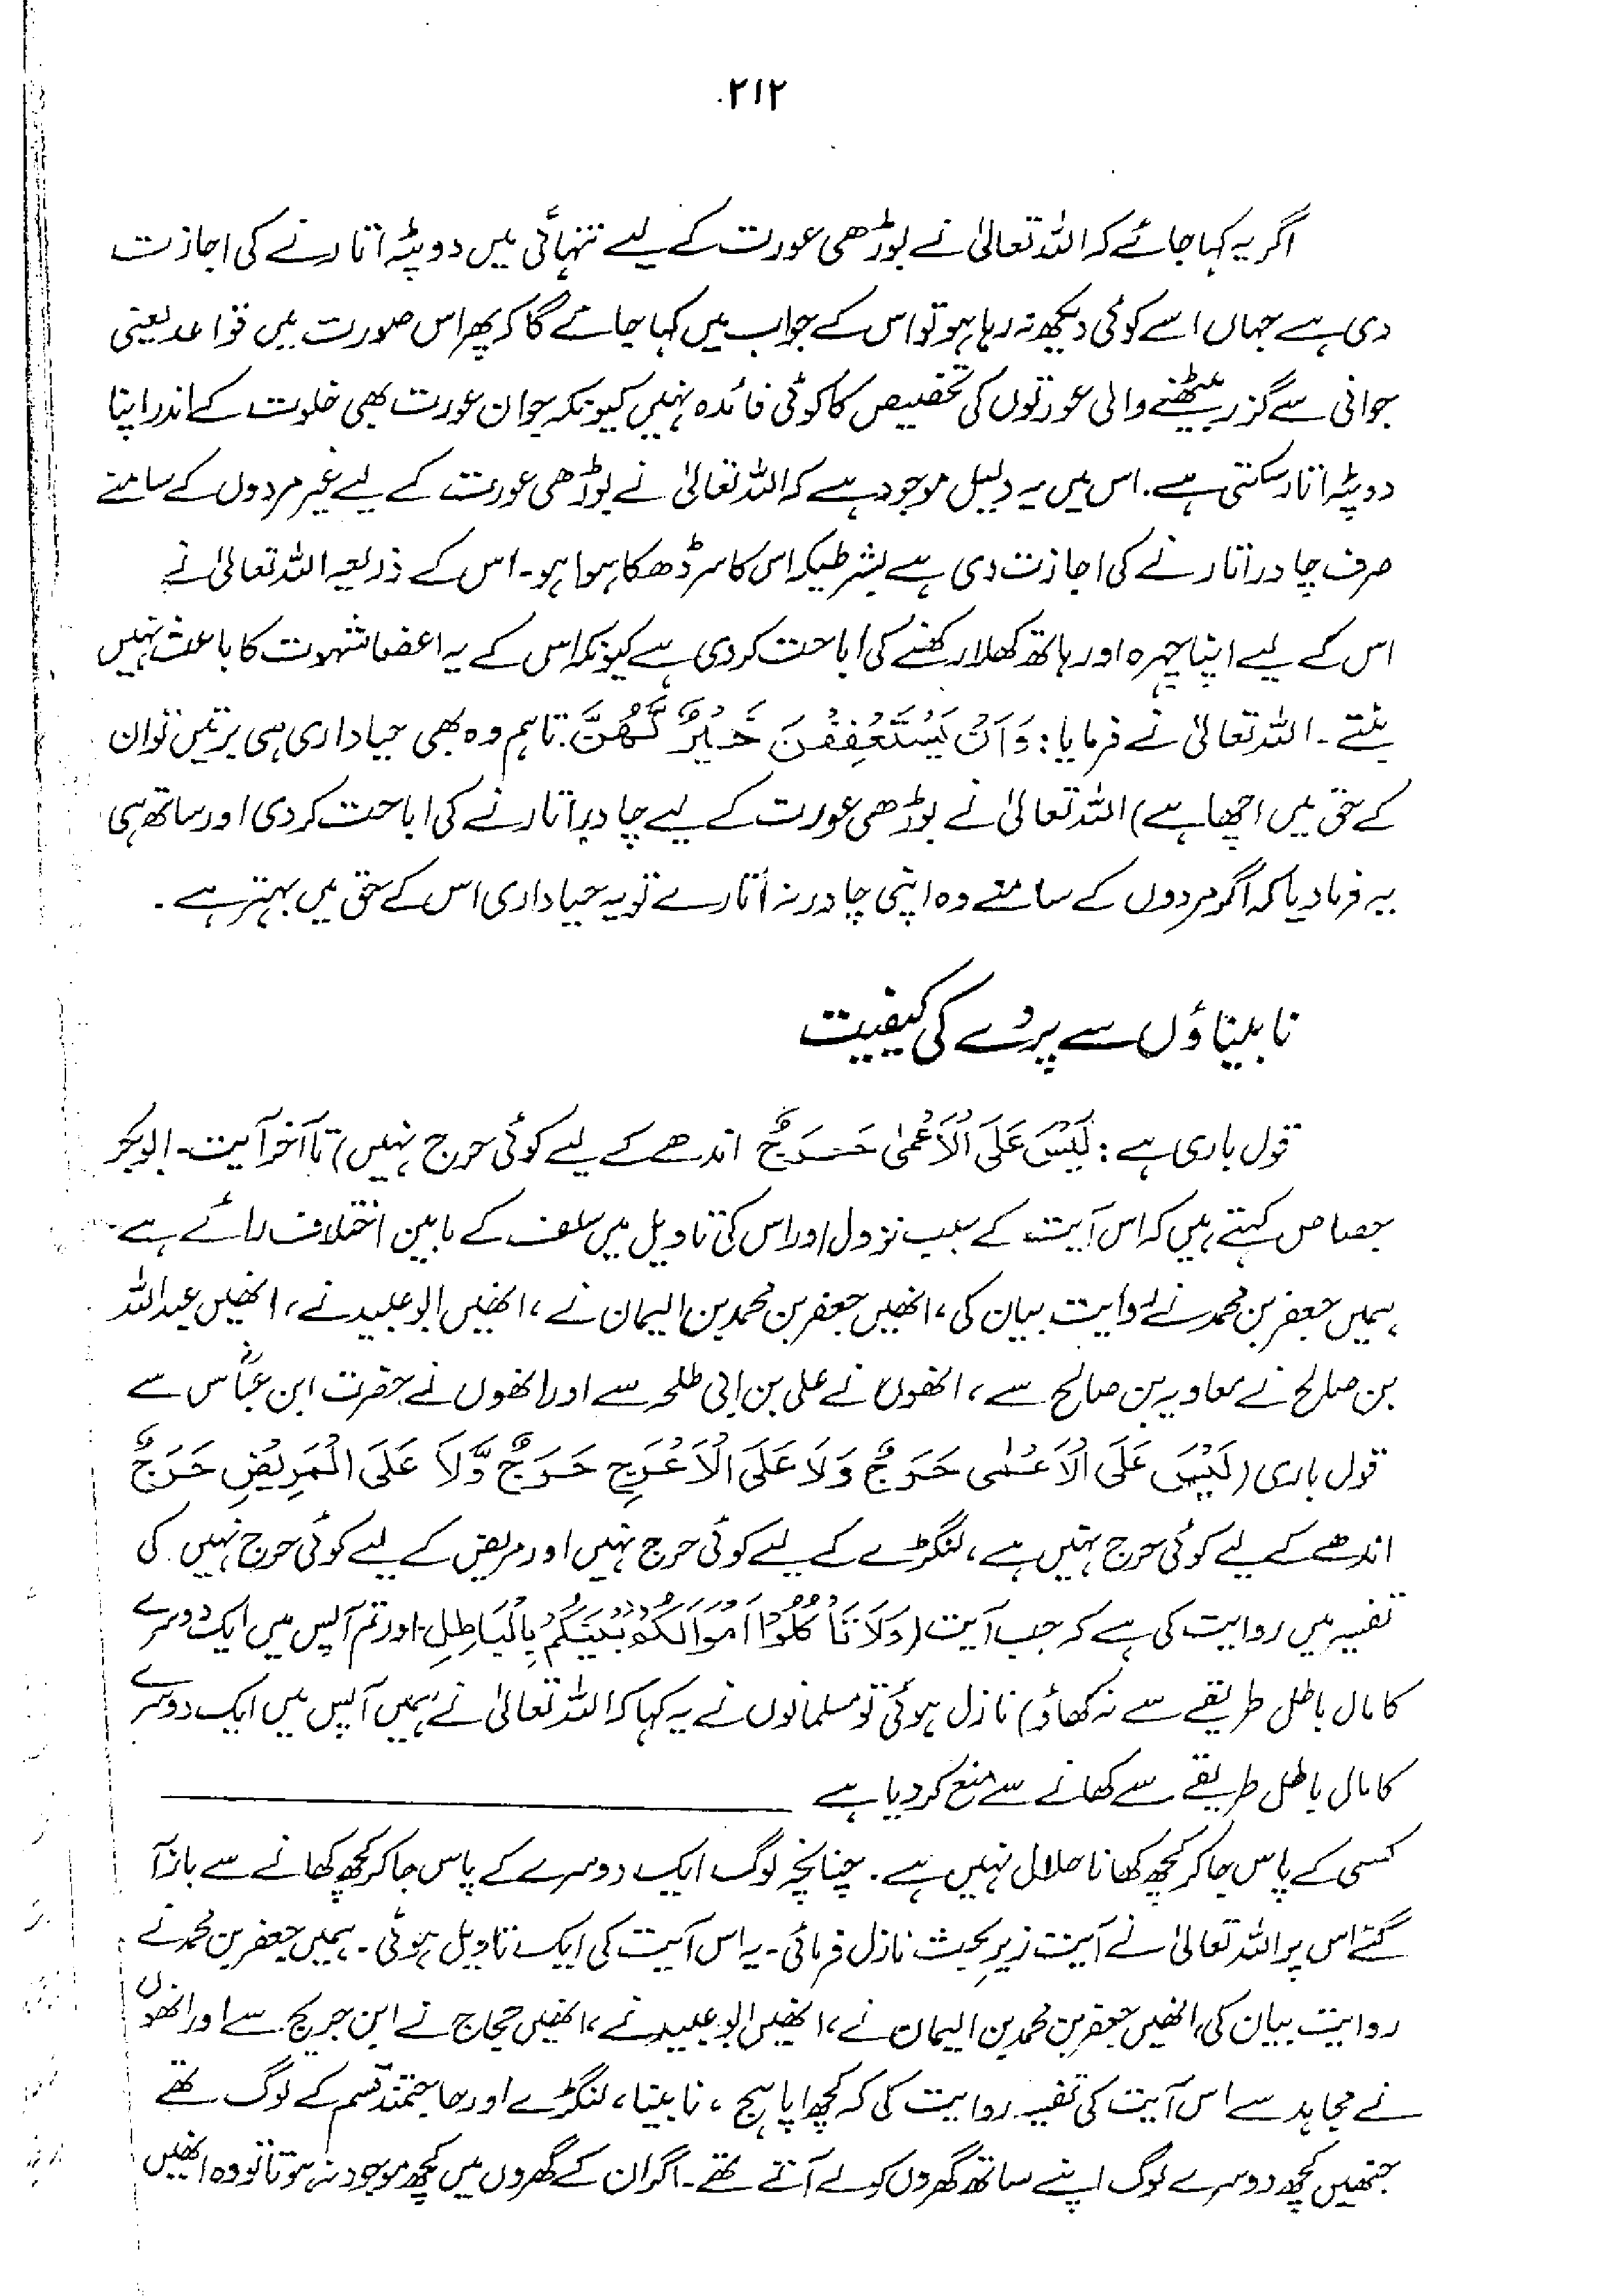 ۲۱۲
اگر یہ کہا جائے کہ اللہ تعالیٰ نے بوڑھی عورت کے لیے تنہائی میں دوپٹہ اتارنے کی اجازت
دی ہے جہاں اسے کوئی دیکھ نہ رہا ہو تو اس کے جواب میں کہا جائے گا کہ پھر اس صورت میں قواعد یعنی
جوانی سے گزر بیٹھنے والی عورتوں کی تخصیص کا کوئی فائدہ نہیں کیونکہ جوان عورت بھی خلوت کے اندر اپنا
دوپٹہ اتار سکتی ہے۔ اس میں یہ دلیل موجود ہے کہ اللہ تعالیٰ نے بوڑھی عورت کے لیے غیر مردوں کے سامنے
صرف چادر اتارنے کی اجازت دی ہے بشرطیکہ اس کا سر ڈھکا ہوا ہو۔ اس کے ذریعہ اللہ تعالیٰ نے
اس کے لیے اپنا چہرہ اور ہاتھ کھلا رکھنے کی اباحت کر دی ہے کیونکہ اس کے یہ اعضا شہوت کا باعث نہیں
بنتے۔ اللہ تعالیٰ نے فرمایا: وَاَنْ يَّسْتَعْفِفْنَ خَيْرٌ لَّهُنَّ۔ تاہم وہ بھی حیاداری ہی برتیں تو ان
کے حق میں اچھا ہے) اللہ تعالیٰ نے بوڑھی عورت کے لیے چادر اتارنے کی اباحت کر دی اور ساتھ ہی
یہ فرما دیا کہ اگر مردوں کے سامنے وہ اپنی چادر نہ اُتارے تو یہ حیاداری اس کے حق میں بہتر ہے۔
نابیناؤں سے پردے کی کیفیت
قول باری ہے: لَيْسَ عَلَى الْاَعْمٰى حَرَجٌ اندھے کے لیے کوئی حرج نہیں) تا آخر آیت۔ ابوبکر
جصاص کہتے ہیں کہ اس آیت کے سبب نزول اور اس کی تاویل میں سلف کے مابین اختلاف رائے ہے۔
ہمیں جعفر بن محمد نے روایت بیان کی، انھیں جعفر بن محمد بن الیمان نے، انھیں ابو عبید نے، انھیں عبداللہ
بن صالح نے معاویہ بن صالح سے، انھوں نے علی بن ابی طلحہ سے اور انھوں نے حضرت ابن عباسؓ سے
قول باری (لَيْسَ عَلَى الْاَعْمٰى حَرَجٌ وَلَا عَلَى الْاَعْرَجِ حَرَجٌ وَّلَا عَلَى الْمَرِيْضِ حَرَجٌ
اندھے کے لیے کوئی حرج نہیں ہے، لنگڑے کے لیے کوئی حرج نہیں اور مریض کے لیے کوئی حرج نہیں کی
تفسیر میں روایت کی ہے کہ جب آیت (وَلَا تَأْكُلُوْا اَمْوَالَكُمْ بَيْنَكُمْ بِالْبَاطِلِ۔ اور تم آپس میں ایک دوسرے
کا مال باطل طریقے سے نہ کھاؤ) نازل ہوئی تو مسلمانوں نے یہ کہا کہ اللہ تعالیٰ نے ہمیں آپس میں ایک دوسرے
کا مال باطل طریقے سے کھانے سے منع کر دیا ہے
کسی کے پاس جا کر کچھ کھانا حلال نہیں ہے۔ چنانچہ لوگ ایک دوسرے کے پاس جا کر کچھ کھانے سے باز آ
گئے اس پر اللہ تعالیٰ نے آیت زیرِ بحث نازل فرمائی۔ یہ اس آیت کی ایک تاویل ہوئی۔ ہمیں جعفر بن محمد نے
روایت بیان کی، انھیں جعفر بن محمد بن الیمان نے، انھیں ابو عبید نے، انھیں حجاج نے ابن جریج سے اور انھوں
نے مجاہد سے اس آیت کی تفسیر روایت کی کہ کچھ اپاہج، نابینا، لنگڑے اور حاجتمند قسم کے لوگ تھے
جنھیں کچھ دوسرے لوگ اپنے ساتھ گھروں کو لے آتے تھے۔ اگر ان کے گھروں میں کچھ موجود نہ ہوتا تو وہ انھیں